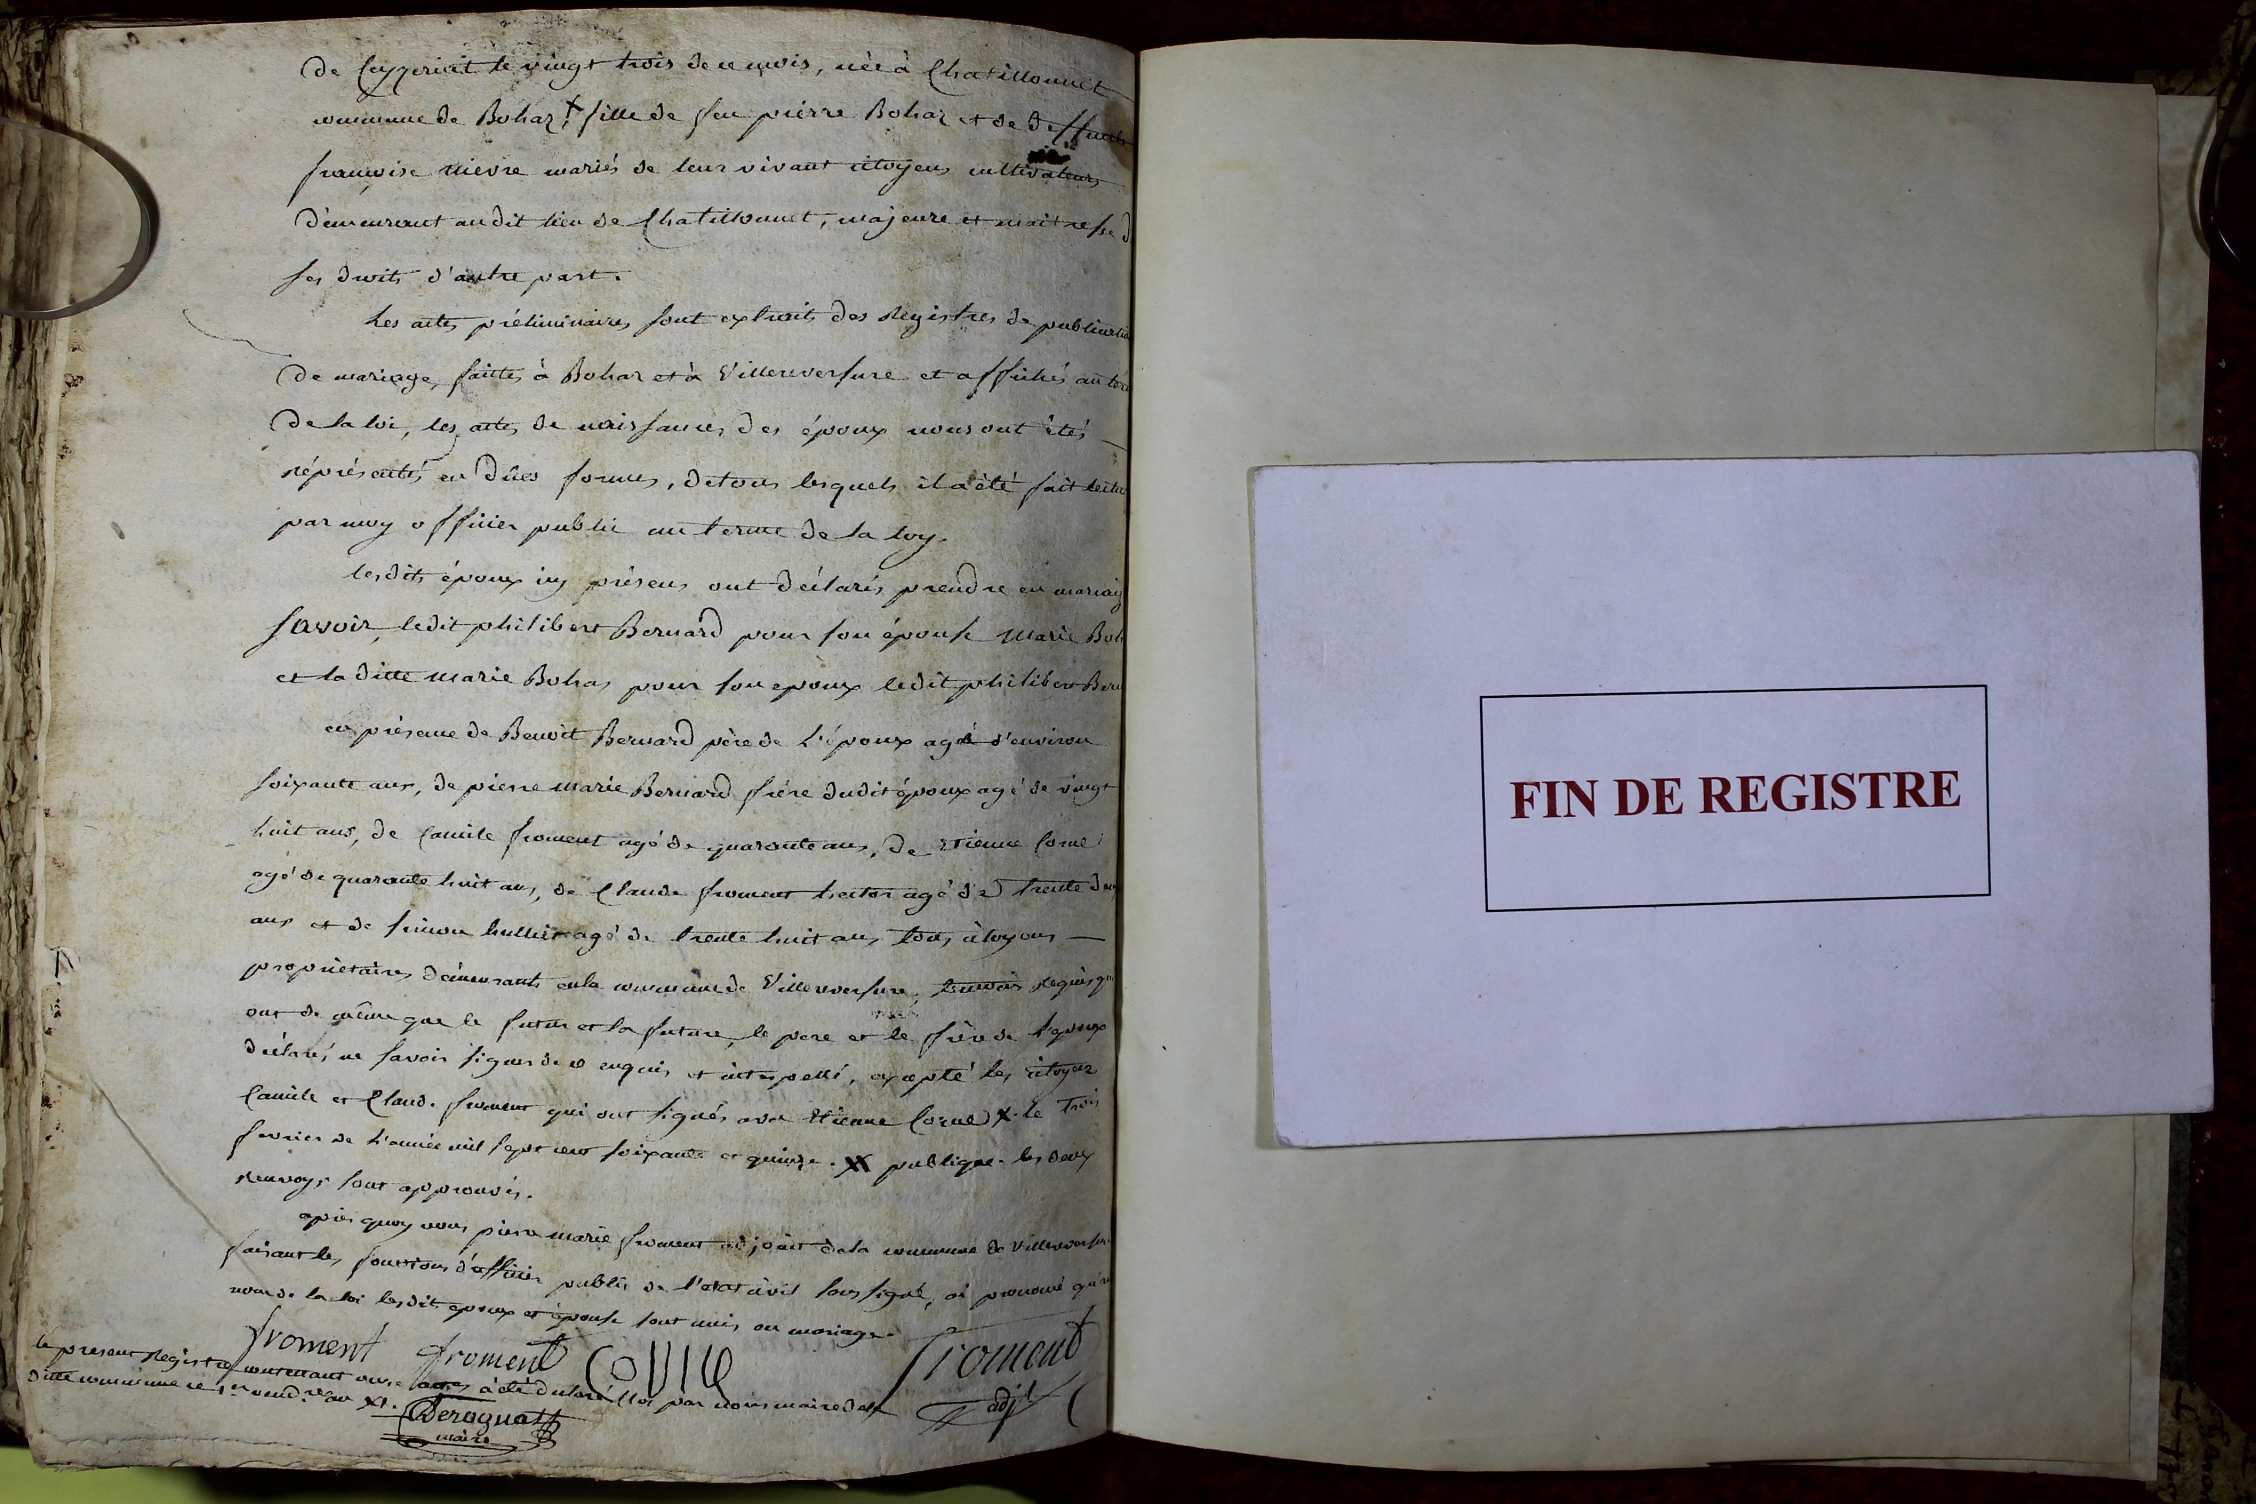 de Ceyzeriat le vingt trois de ce mois, née à Chatillonnet
commune de Bohaz, x fille de feu pierre Bohaz et de deffunte
françoise Mievre mariés de leur vivant citoyens cultivateurs
démeurant audit lieu de Chatillonnet, majeure et maitresse d
ses droits d'autre part.
Les actes préliminaires sont extraits des Registres de publication
de mariage, faittes à Bohas et à Villereversure et affichés au ter
de la loi, les actes de naissances des époux nous ont étés
réprésentés en dües formes, de tous lesquels il a été fait lectu
par moy officier public au terme de la loy.
lesdits époux icy présens ont déclarés prendre en mariag
savoir, ledit philibert Bernard pour son épouse Marie Boh
et la ditte Marie Bohas pour son epoux ledit philibert Bern
en présence de Benoit Bernard père de L'époux agé d'environ
soixante ans, de pierre Marie Bernard frére dudit époux agé de vingt
huit ans, de Camile froment agé de quarante ans, de Etienne Corne
agé de quarante huit ans, de Claude froment agé de trente
ans et de simon agé de trente huit ans tous citoyens
propriétaires démeurants en la commune de Villereversure, temoins Requis qu
ont de même que le futur et la future, le pere et le frére de l'époux
déclarés ne savoir signer de ce enquis et interpellé, excepté les citoyens
Camile et Claude froment qui ont signés avec Etienne Corne x le trois
fevrier de l'année mil sept cent soixante et quinze. xx publique. les deux
renvoys sont approuvés.
après quoy nous pierre marie froment adjoint de la commune de Villereversure
faisant les fonctions d'officier public de l'etat civil soussigné, ai prononcé qu'au
nom de la loi lesdits epoux et épouse sont unis en mariage.
froment froment Corne froment
adjt
le present Registre contenant onze actes à été declaré clos par nous maire de la
ditte commune le 1er vendre an XI.
Derognat
maire
FIN DE REGISTRE